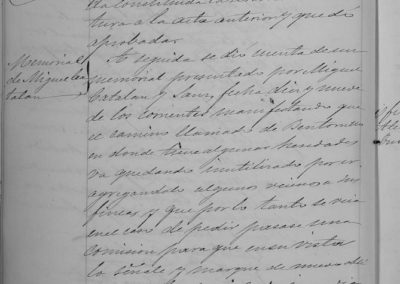 tura a la acta anterior y que dó
aprobada.
Memorial
de Miguel Ca
talan
A seguida se dió cuenta de un
memorial presentado por Miguel
Catalan y Sanz, fecha diez y nueve
de los corrientes manifestando que
el camino llamado de
en donde tiene algunas heredades
va quedando inutilizado por ir
agregandolo algunos vecinos a sus
fincas y que por lo tanto se veia
en el caso de pedir pasase una
comision para que en su vista
lo señale y marque de nuevo